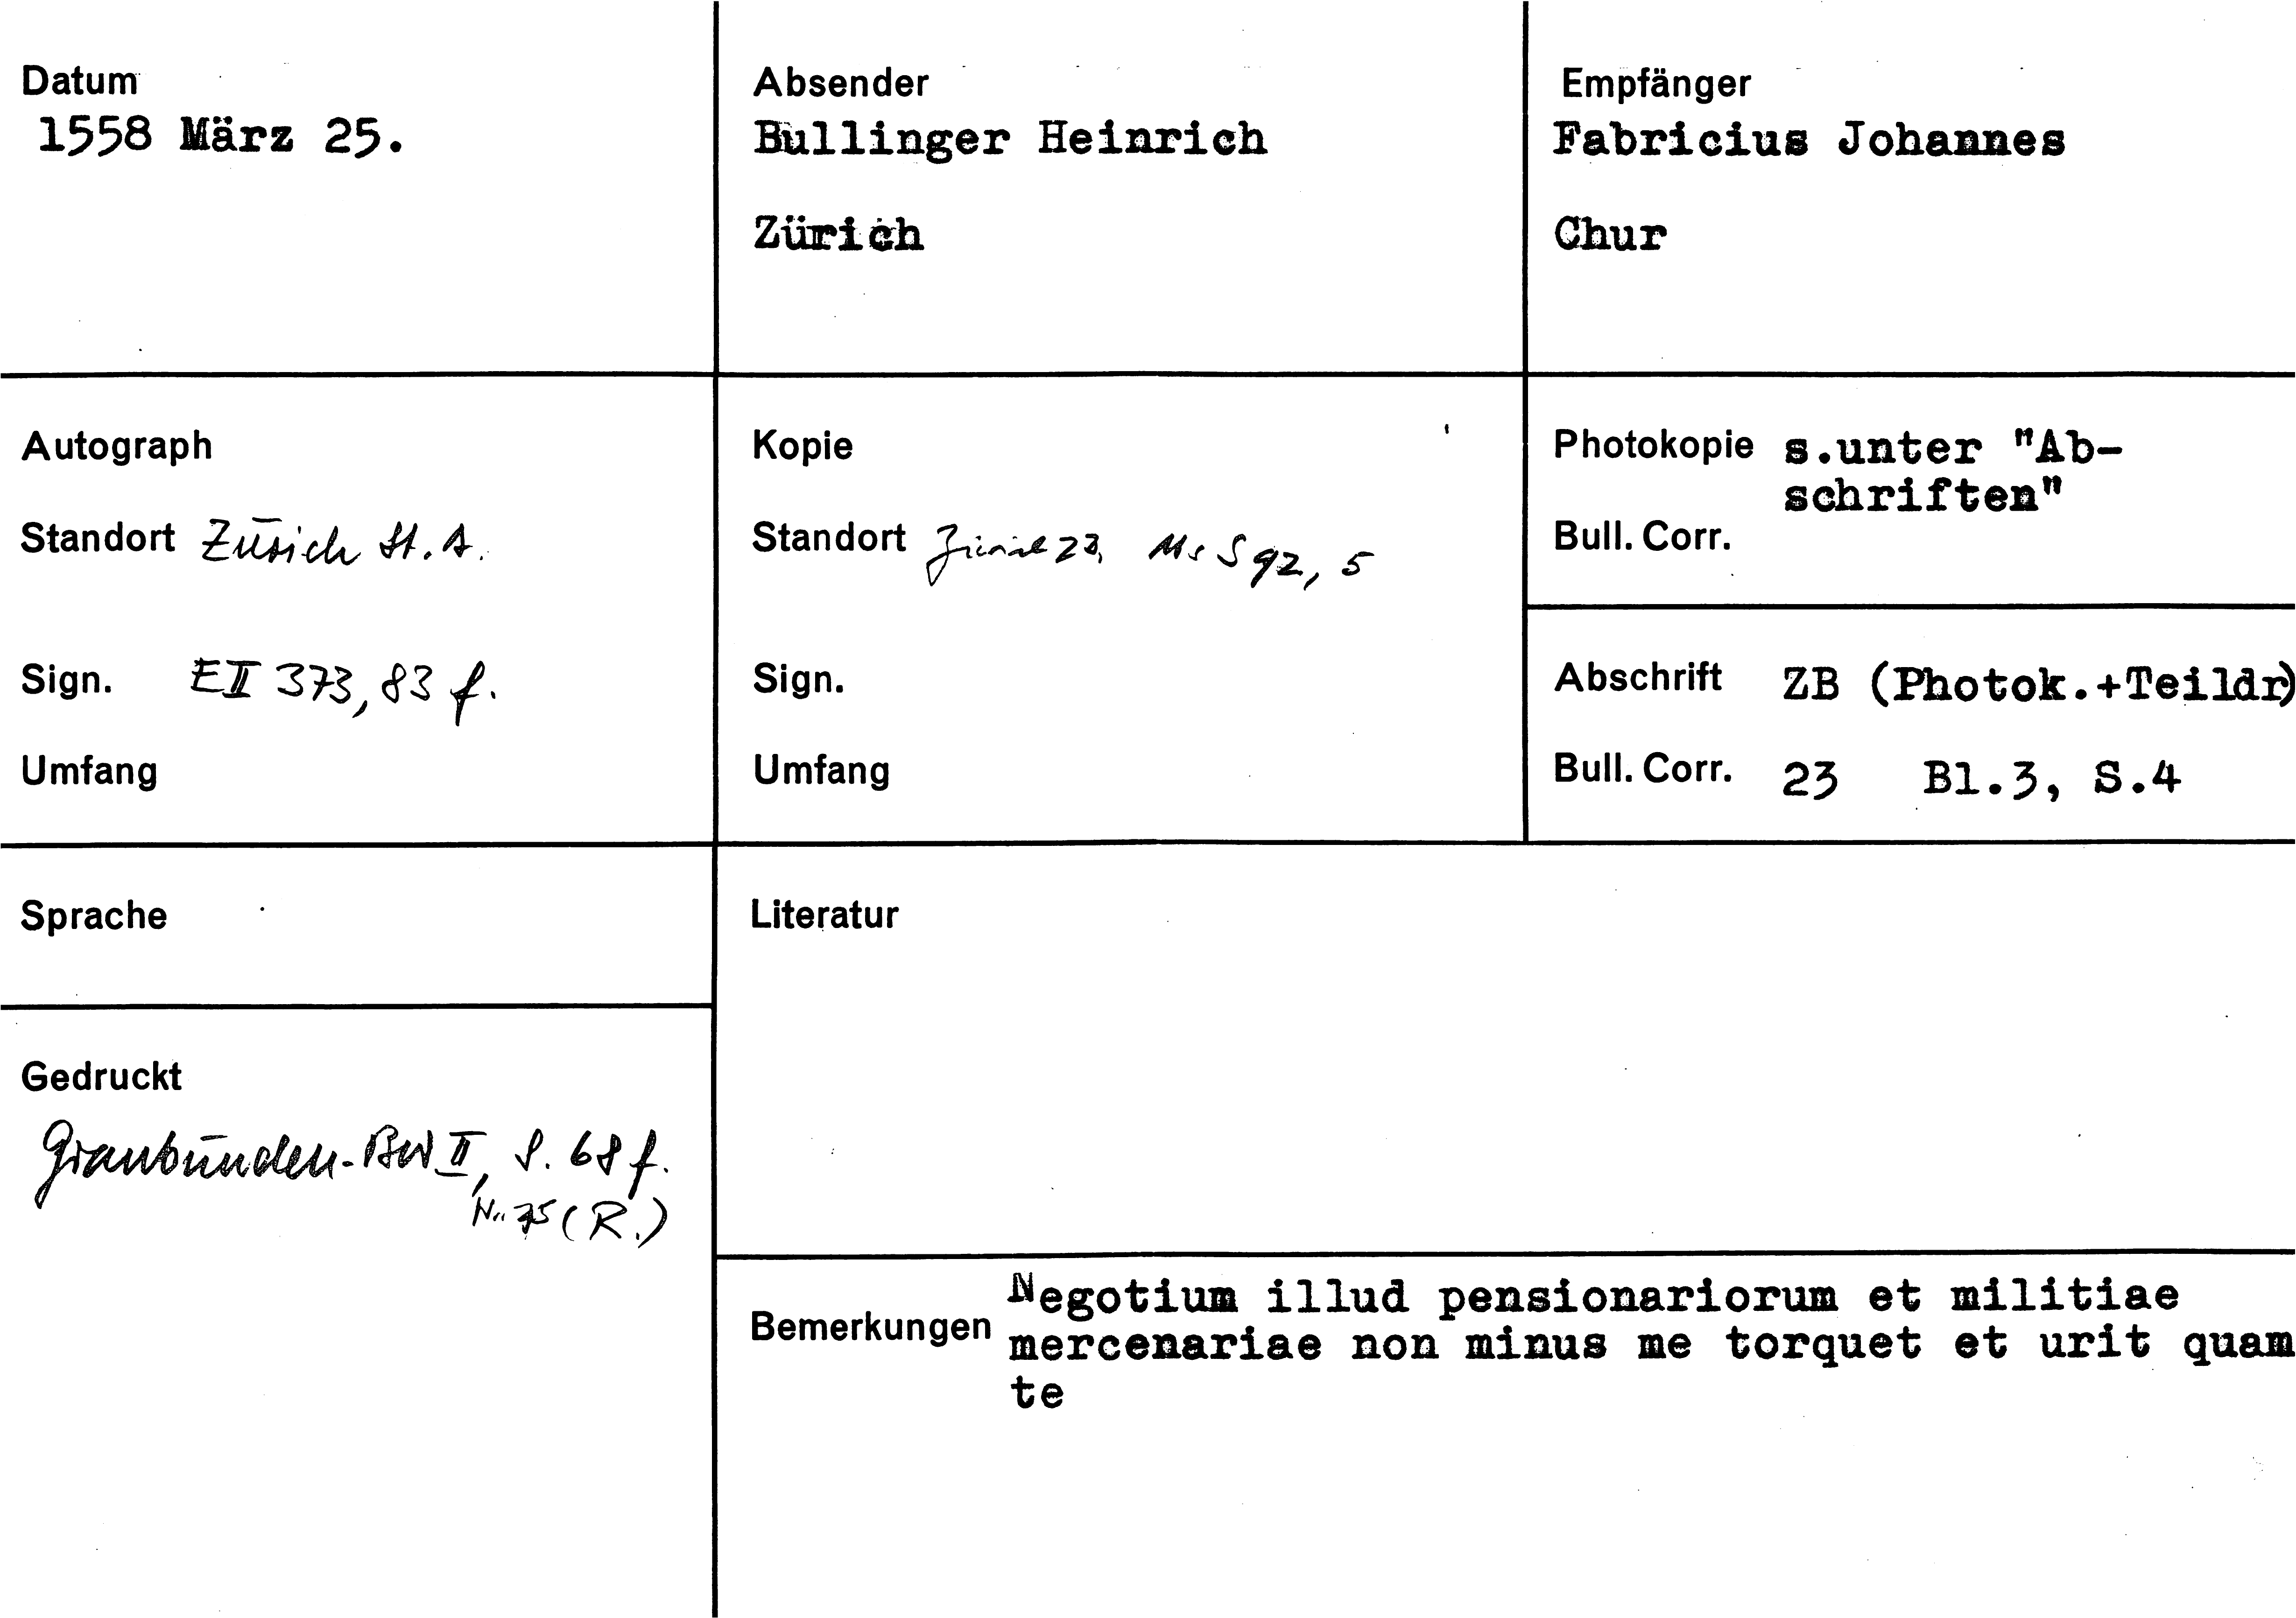 Datum
1558 März 25.
Absender
Bullinger Heinrich
Zürich
Empfänger
Fabricius Johannes
Chur
Autograph
Standort Zürich St. A.
Sign. E II 373, 83 f.
Umfang
Kopie
Standort Zürich ZB, Ms S 92, 5
Sign.
Umfang
Photokopie s.unter "Ab-
schriften"
Bull. Corr.
Abschrift ZB (Photok.+Teildr)
Bull. Corr. 23 Bl.3, S.4
Sprache
Literatur
Gedruckt
Graubünden-BW II, S. 68 f.
Nr. 75 (R.)
Bemerkungen
Negotium illud pensionariorum et militiae
mercenariae non minus me torquet et urit quam
te